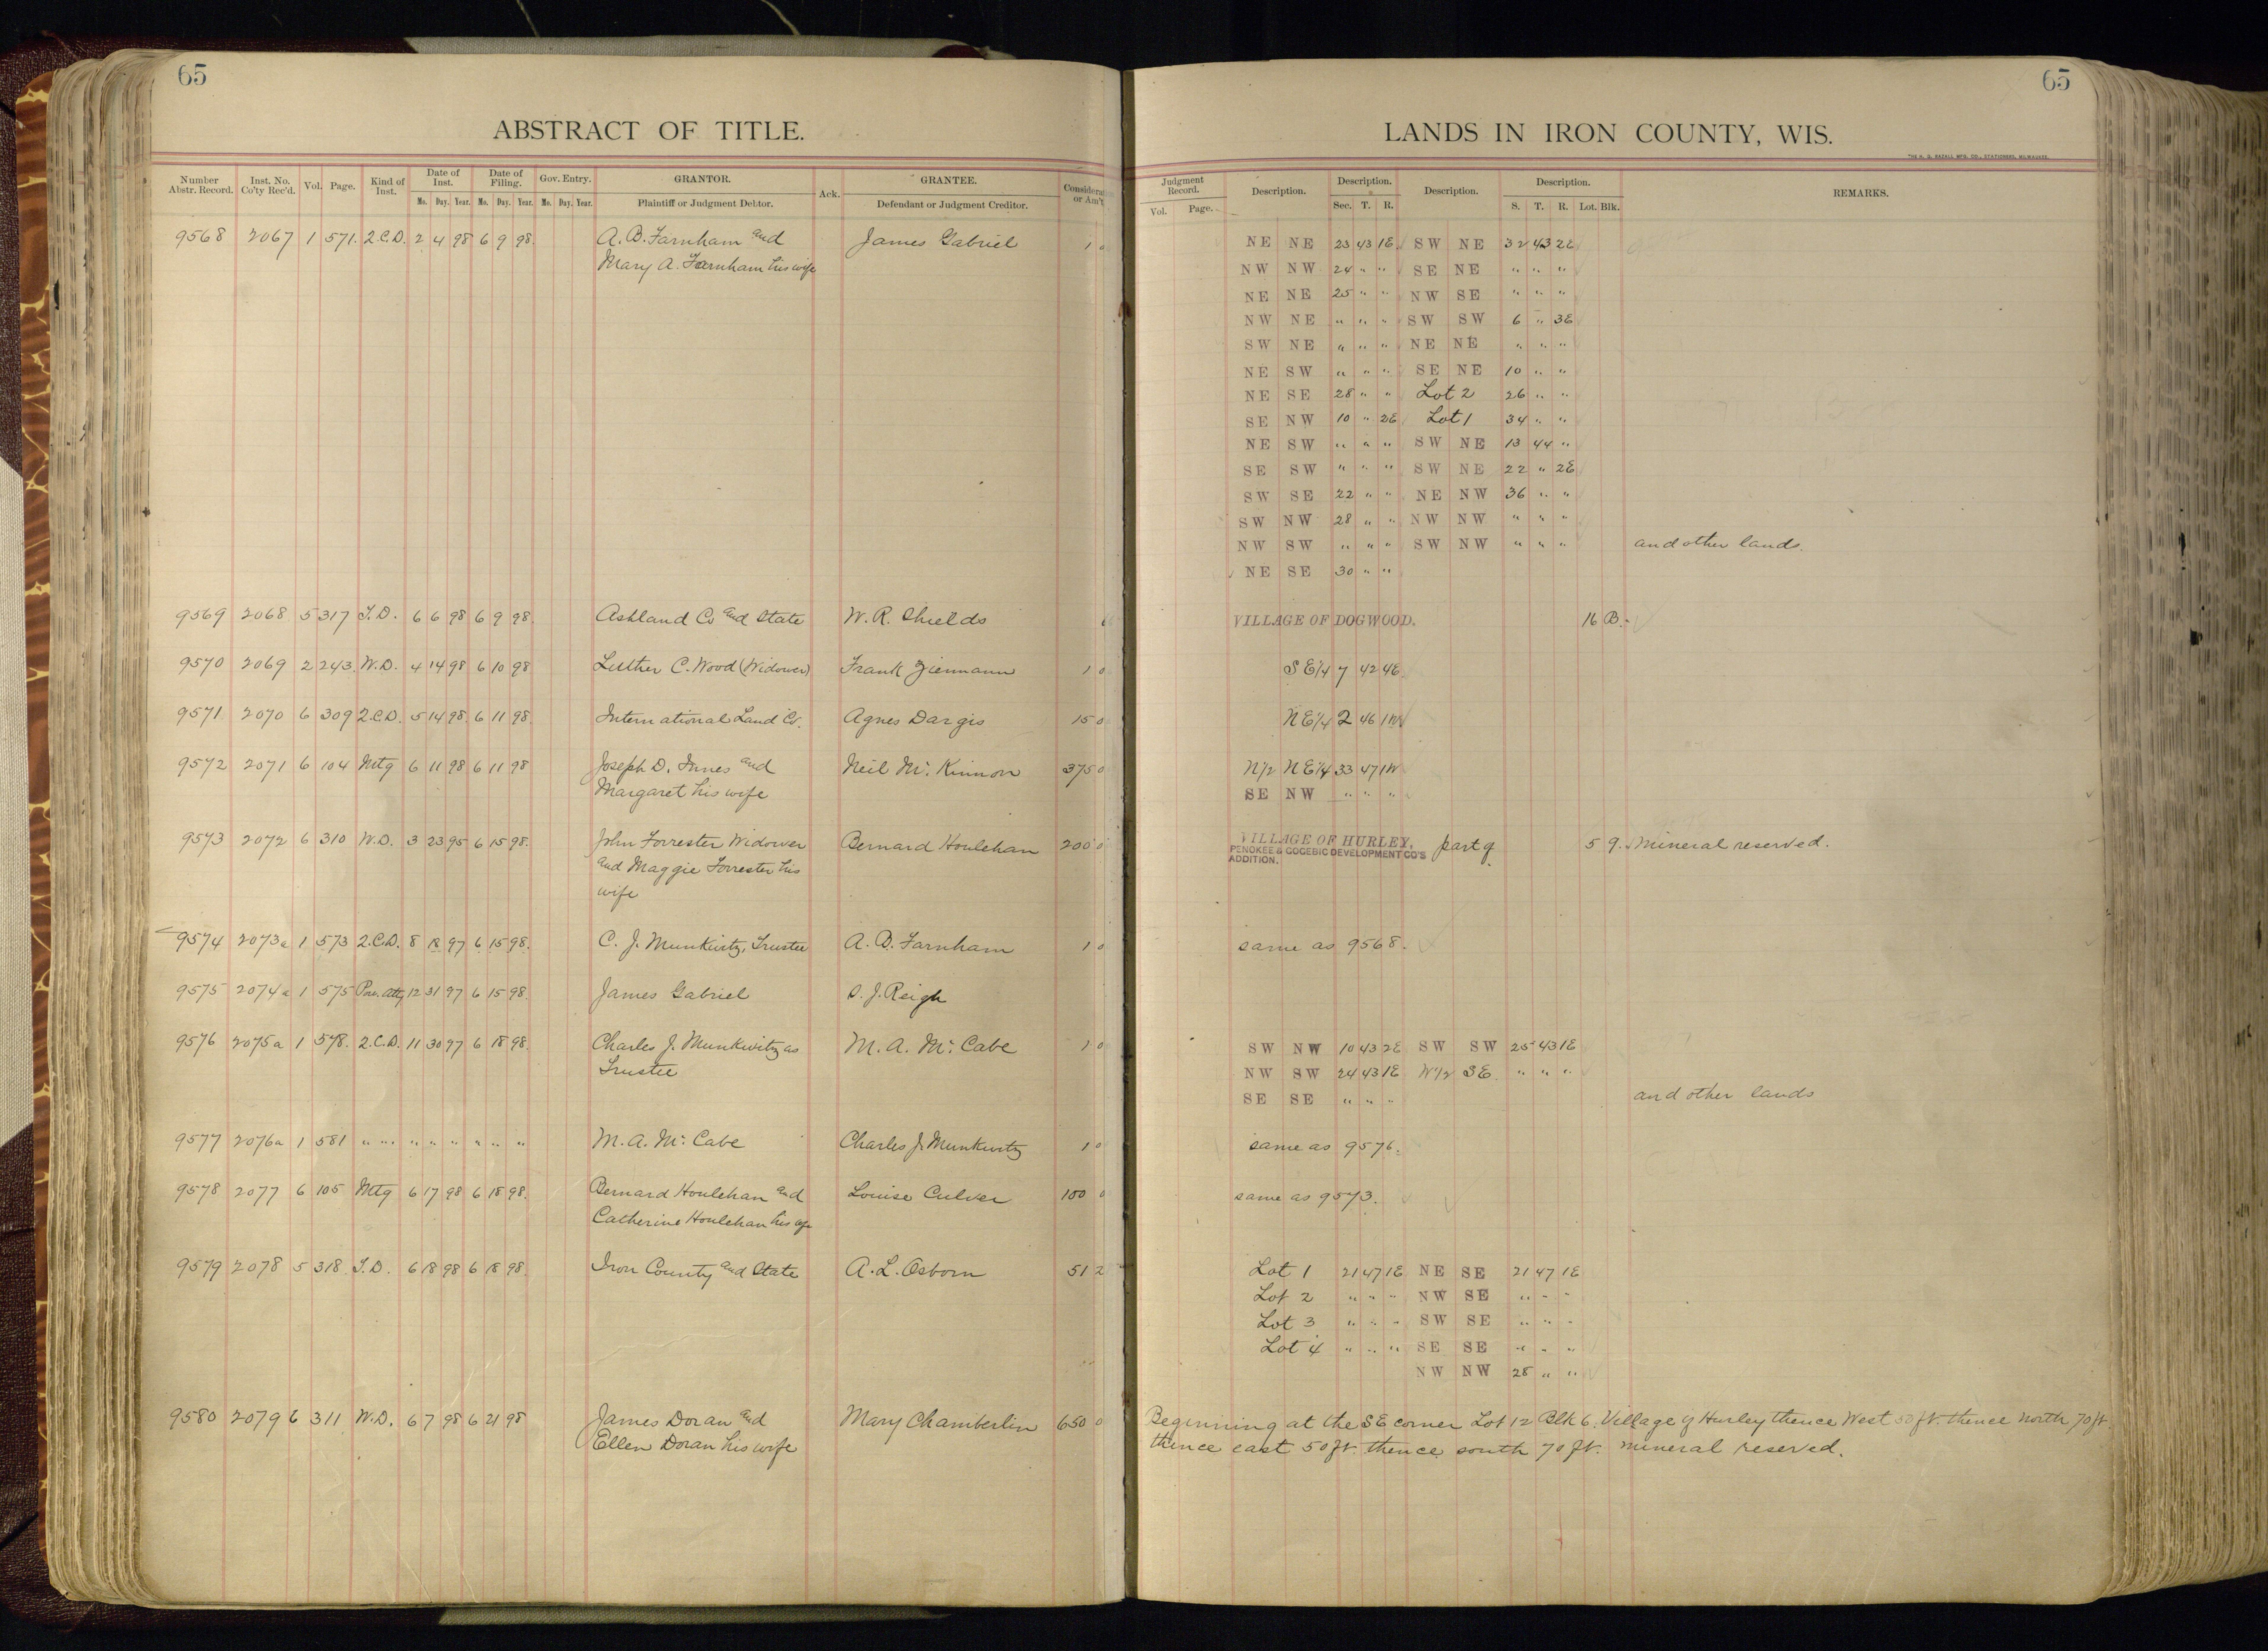 65
ABSTRACT OF TITLE.
Number Abstr. Record. Inst. No. Co'ty Rec'd. Vol. Page. Kind of Inst. Date of Inst. Date of Filing. Gov. Entry. GRANTOR. Ack. GRANTEE.
Mo. Day. Year. Mo. Day. Year. Mo. Day. Year. Plaintiff or Judgment Debtor. Defendant or Judgment Creditor.
9568 2067 1 571. 2.C.D. 2 4 98 6 9 98. A. B. Farnham and James Gabriel 1 0
Mary A. Farnham his wife
9569 2068 5 317 T.D. 6 6 98 6 9 98. Ashland Co and State W. R. Shields
9570 2069 2 243. W.D. 4 14 98 6 10 98 Luther C. Wood (Widower) Frank Ziemann 1 0
9571 2070 6 309 2.C.D. 5 14 98. 6 11 98. International Land Co. Agnes Dargis 15 0
9572 2071 6 104 Mtg 6 11 98 6 11 98 Joseph D. Innes and Neil Mc. Kinnon 375 0
Margaret his wife
9573 2072 6 310 W.D. 3 23 95 6 15 98. John Forrester Widower Bernard Houlehan 200 0
and Maggie Forrester his
wife
9574 2073a 1 573 2.C.D. 8 18 97 6 15 98. C. J. Munkwitz, Trustee A. B. Farnham 1 0
9575 2074a 1 575 Pow. Atty 12 31 97 6 15 98. James Gabriel S. J. Reigh
9576 2075a 1 578. 2.C.D. 11 30 97 6 18 98. Charles J. Munkwitz as M. A. Mc. Cabe 1 0
Trustee
9577 2076a 1 581 " " " " " " " " " M. A. Mc. Cabe Charles J. Munkwitz 1 0
9578 2077 6 105 Mtg 6 17 98 6 18 98. Bernard Houlehan and Louise Culver 100 0
Catherine Houlehan his wife
9579 2078 5 318 T.D. 6 18 98 6 18 98. Iron County and State A. L. Osborn 51 2
9580 2079 6 311 W.D. 6 7 98 6 21 98 James Doran and Mary Chamberlin 650 0
Ellen Doran his wife
65
LANDS IN IRON COUNTY, WIS.
THE H. G. RAZALL MFG. CO., STATIONERS, MILWAUKEE.
Judgment Record. Description. Description. Description. Description. REMARKS.
Vol. Page. Sec. T. R. S. T. R. Lot. Blk.
NE NE 23 43 1E SW NE 32 43 2E
NW NW 24 " " SE NE " " "
NE NE 25 " " NW SE " " "
NW NE " " " SW SW 6 " 3E
SW NE " " " NE NE " " "
NE SW " " " SE NE 10 " "
NE SE 28 " " Lot 2 26 " "
SE NW 10 " 2E Lot 1 34 " "
NE SW " " " SW NE 13 44 "
SE SW " " " SW NE 22 " 2E
SW SE 22 " " NE NW 36 " "
SW NW 28 " " NW NW " " "
NW SW " " " SW NW " " " and other lands.
NE SE 30 " "
VILLAGE OF DOGWOOD. 16 B.
S E1/4 7 42 4E
N E1/4 2 46 1W
N1/2 N E1/4 33 47 1W
SE NW " " "
VILLAGE OF HURLEY, part of 5 9. Mineral reserved.
PENOKEE & GOGEBIC DEVELOPMENT CO'S
ADDITION.
same as 9568.
SW NW 10 43 2E SW SW 25 43 1E
NW SW 24 43 1E W1/2 SE " " "
SE SE " " " and other lands
same as 9576.
same as 9573.
Lot 1 21 47 1E NE SE 21 47 1E
Lot 2 " " " NW SE " " "
Lot 3 " " " SW SE " " "
Lot 4 " " " SE SE " " "
NW NW 28 " "
Beginning at the SE corner Lot 12 Blk 6. Village of Hurley thence West 50 ft. thence north 70 ft.
thence east 50 ft. thence south 70 ft. mineral reserved.